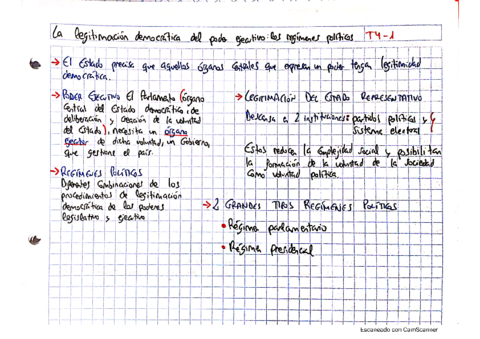 La legitimación democrática del poder ejecutivo: los regímenes políticos T4-1
→ El Estado precisa que aquellos órganos estatales que expresan un poder tengan legitimidad
democrática.
→ PODER EJECUTIVO El Parlamento (órgano
central del Estado democrático de
deliberación y creación de la voluntad
del Estado), necesita un órgano
ejecutor de dicha voluntad, un Gobierno,
que gestione el país.
→ REGÍMENES POLÍTICOS
Diferentes combinaciones de los
procedimientos de legitimación
democrática de los poderes
legislativo y ejecutivo
→ LEGITIMACIÓN DEL ESTADO REPRESENTATIVO
Descansa en 2 instituciones: partidos políticos y
sistema electoral
Estos reducen la complejidad social y posibilitan
la formación de la voluntad de la sociedad
como voluntad política.
→ 2 GRANDES TIPOS REGÍMENES POLÍTICOS
• Régimen parlamentario
• Régimen presidencial
Escaneado con CamScanner